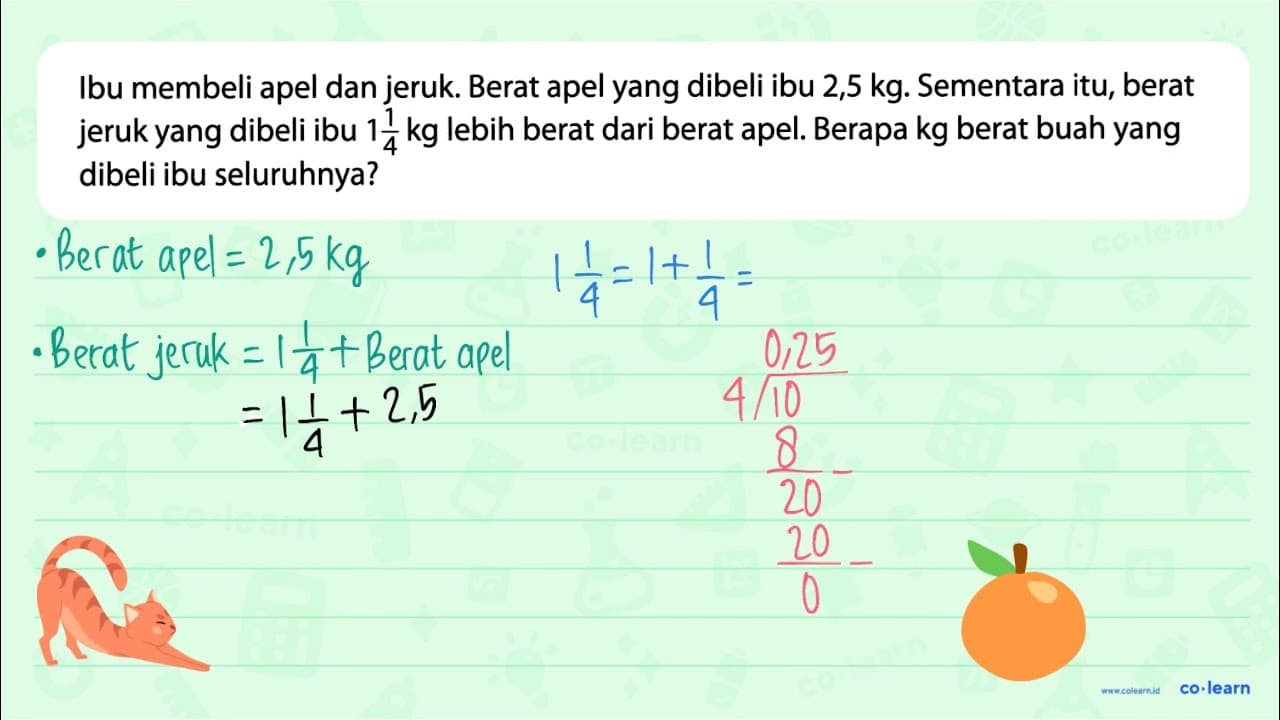 Ibu membeli apel dan jeruk. Berat apel yang dibeli ibu 2,5 kg. Sementara itu, berat
jeruk yang dibeli ibu 1 1/4 kg lebih berat dari berat apel. Berapa kg berat buah yang
dibeli ibu seluruhnya?
• Berat apel = 2,5 kg
1 1/4 = 1 + 1/4 =
• Berat jeruk = 1 1/4 + Berat apel
= 1 1/4 + 2,5
0,25
4/10
8 -
20
20 -
0
co·learn
co·learn
co·learn
co·learn
www.colearn.id co·learn